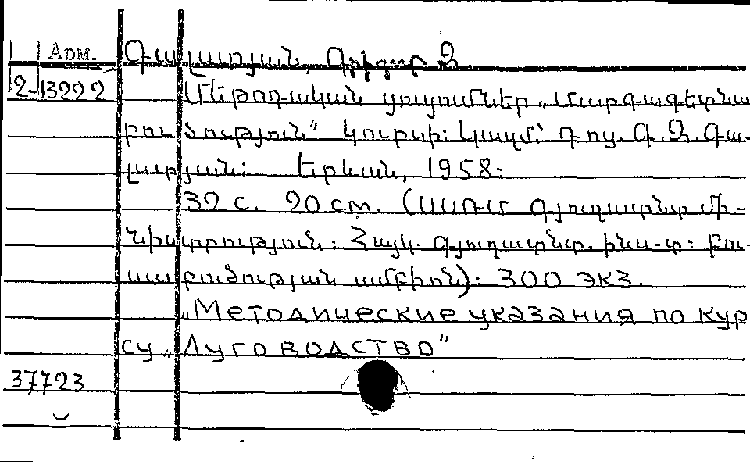 Арм. Գալստյան, Գրիգոր Զ
2-13222 Մեթոդական ցուցումներ „Մարգագետնա
բուծություն“ կուրսի: Կազմ՝ դոց. Գ. Զ. Գա-
լստյան: Երևան, 1958:
32 с. 20 cm. (ՍՍՌՄ Գյուղատնտ. Մի-
նիստրություն: Հայկ. գյուղատնտ. ինս-տ: Բու-
սաբուծության ամբիոն): 300 экз.
„Методические указания по кур
су „Луговодство"
37723